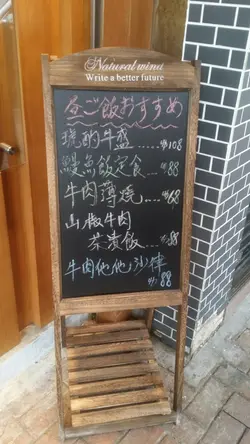 Natural wind
Write a better future
昼ご飯おすすめ
琥酌牛盛 ¥108
鰻魚飯定食.... ¥88
牛肉薄燒.... ¥68
山椒牛肉
茶漬飯... ¥88
牛肉他他沙律
¥88